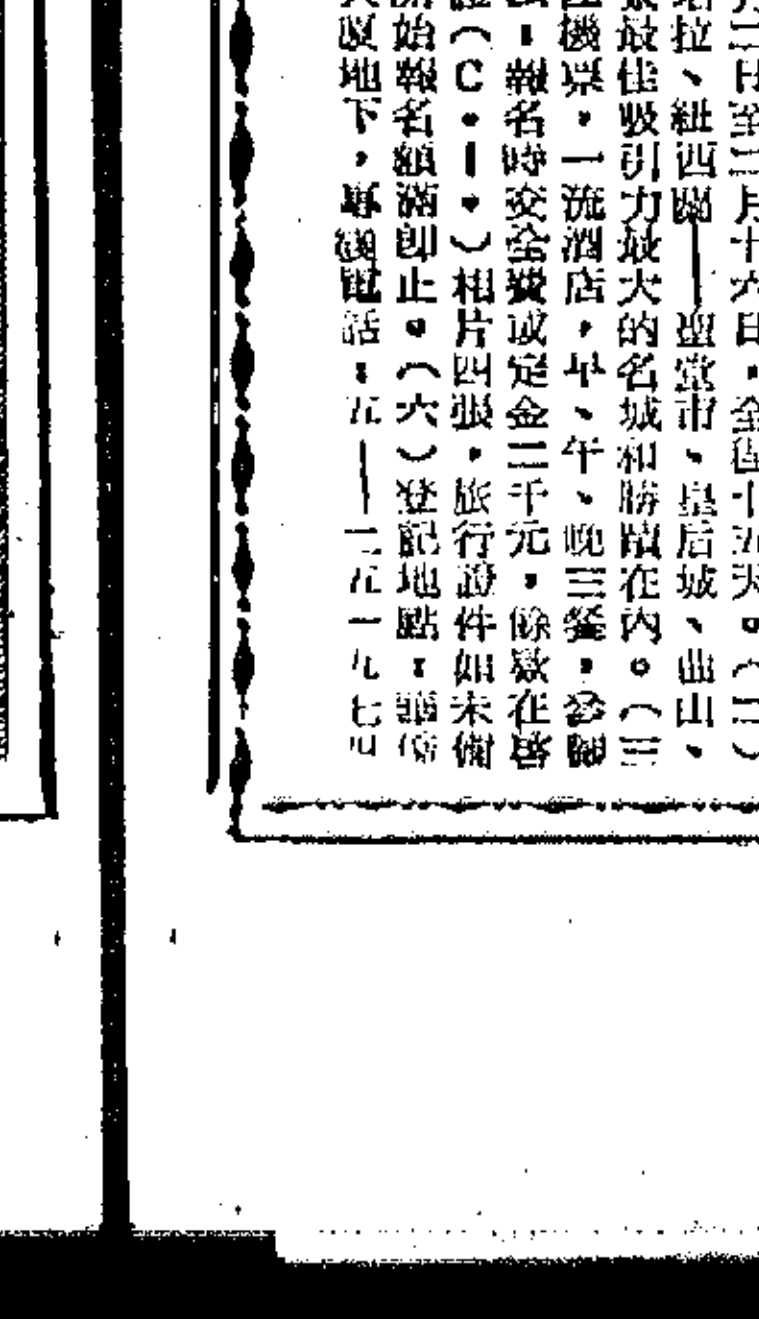 月二日至二月十六日，全程十五天。（二）
拉、紐西蘭——聖堂市、皇后城、曲山、
最佳吸引力最大的名城和勝蹟在內。（三
機票，一流酒店，早、午、晚三餐，
：報名時交全費或定金二千元，餘款在
（C・I・）相片四張，旅行證件如未備
始報名額滿即止。（六）登記地點：
地下，專線電話：五——二五一九七四